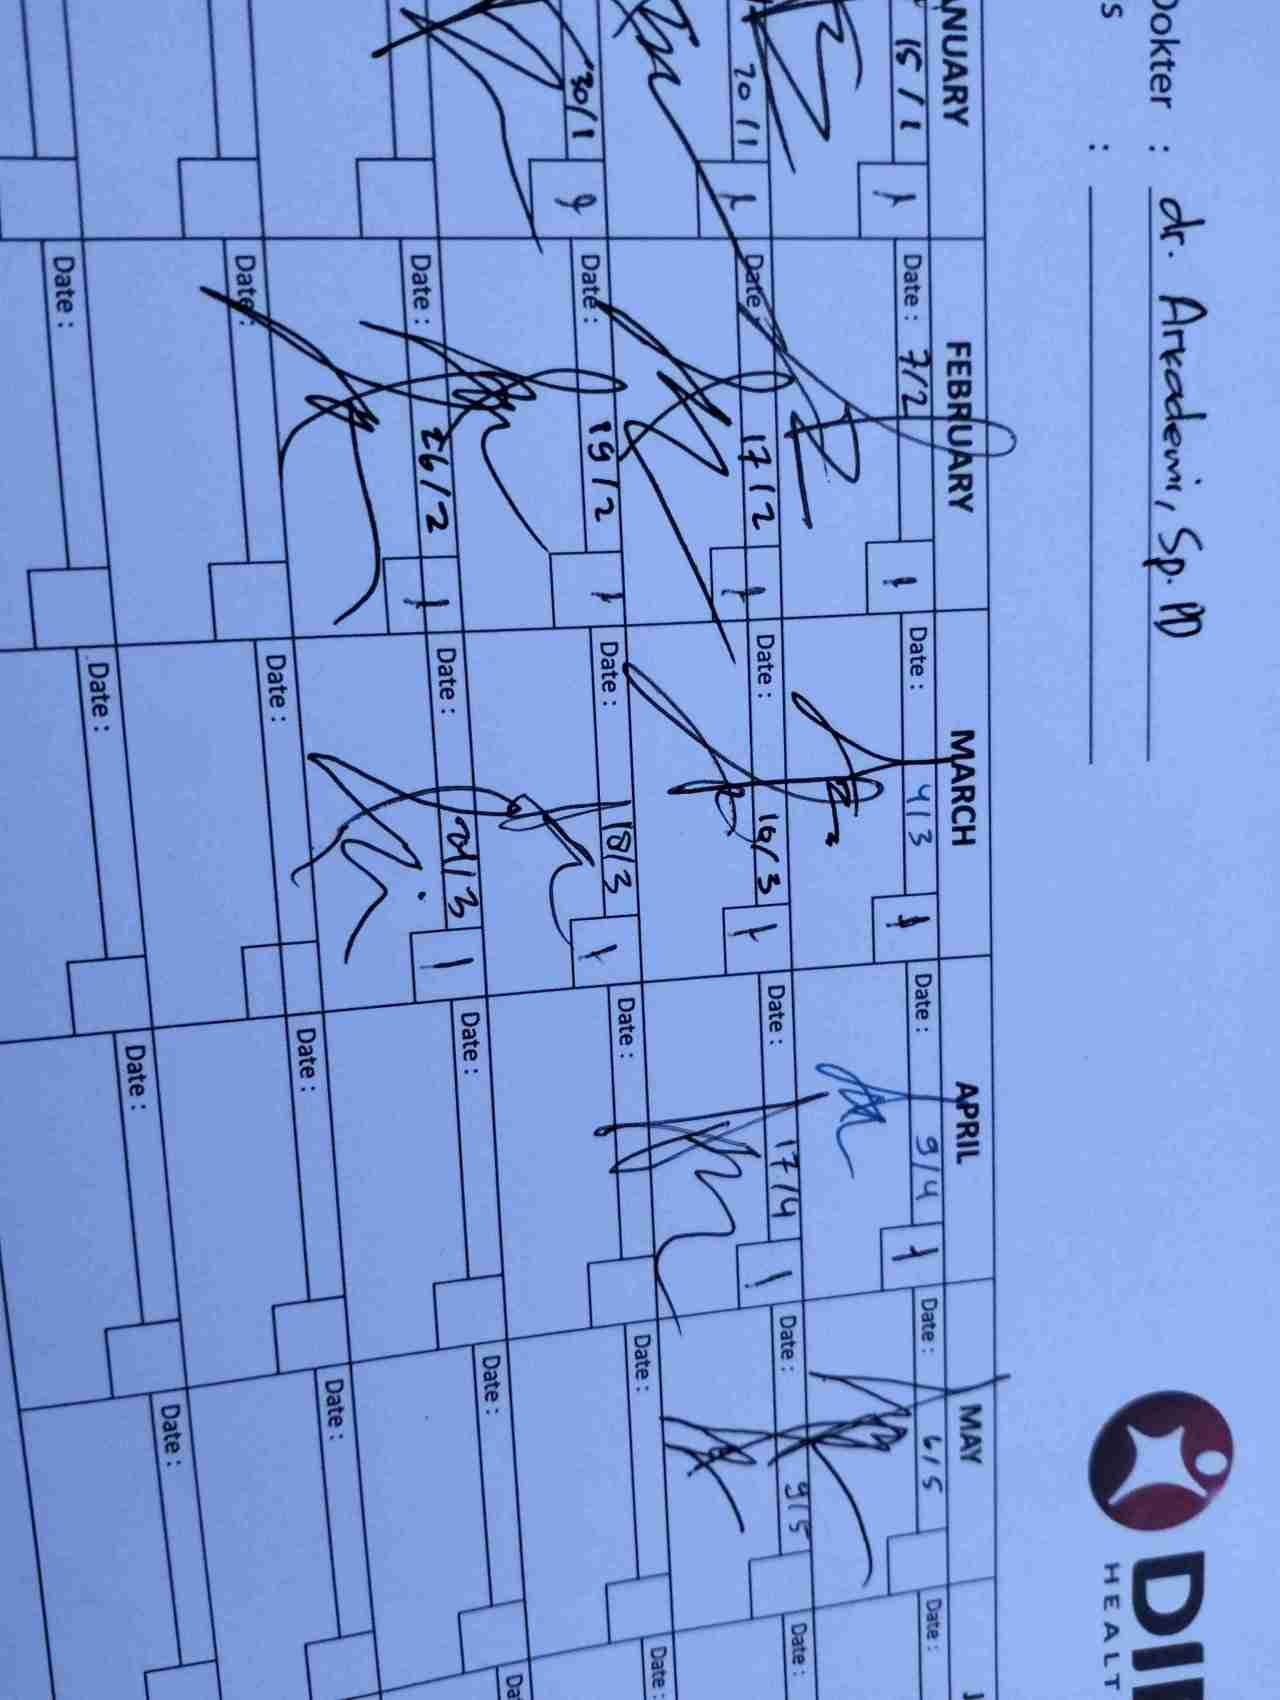 Dokter : dr. Arkademi, Sp. PD
s :
DI
HEALT
ANUARY FEBRUARY MARCH APRIL MAY J
15/1 1 Date : 7/2 1 Date : 4/3 1 Date : 9/4 1 Date : 6/5 Date :
20/1 1 Date : 17/2 1 Date : 16/3 1 Date : 17/4 1 Date : 9/5 Date :
30/1 Date : 19/2 1 Date : 18/3 1 Date : Date : Date :
Date : 26/2 1 Date : 1 Date : Date : Da
Date : Date : Date : Date :
Date : Date : Date : Date :